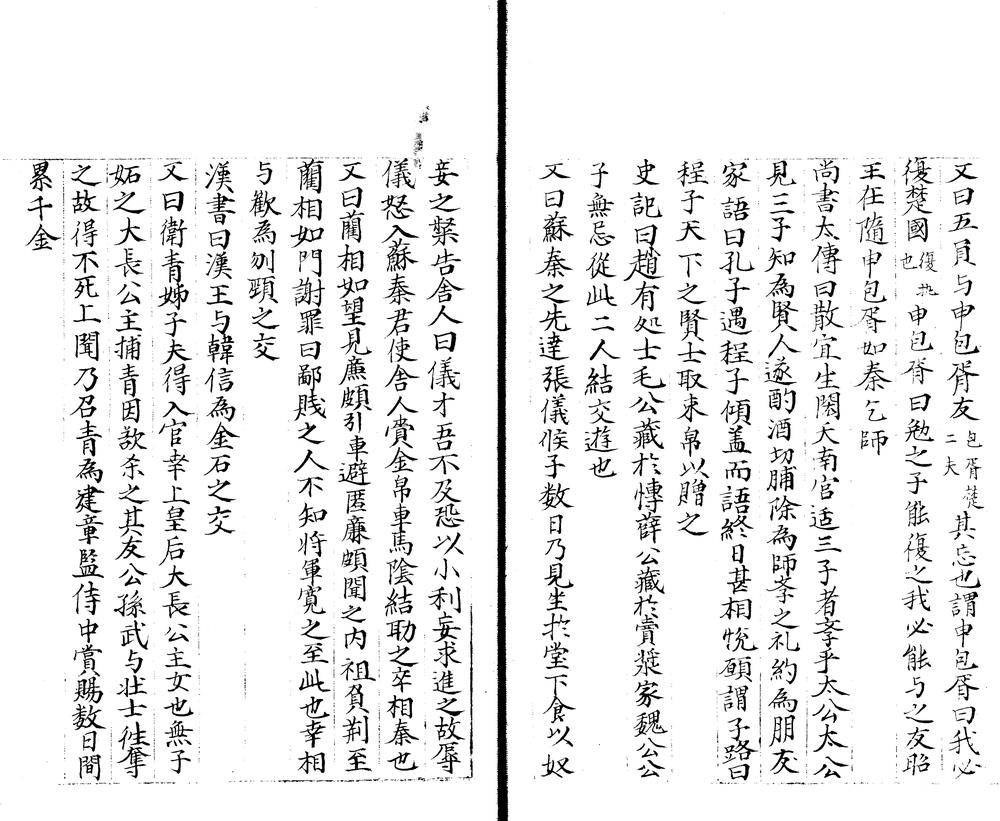 又曰五員与申包胥友包胥楚二夫其忘也謂申包胥曰我必
復楚國復扎也申包胥曰勉之子能復之我必能与之友昭
王在隨申包胥如秦乞師
尚書太傳曰散宜生閎夭南宮适三子者孝乎太公太公
見三子知為賢人遂酌酒切脯除為師孝之礼約為朋友
家語曰孔子遇程子傾盖而語終日甚相悅顧謂子路曰
程子天下之賢士取束帛以贈之
史記曰趙有処士毛公藏於愽薛公藏於賣漿家魏公公
子無忌從此二人結交遊也
又曰蘇秦之先達張儀候子数日乃見坐於堂下食以奴
妾之槃告舍人曰儀才吾不及恐以小利妄求進之故辱
儀怒入蘇秦君使舍人賞金帛車馬陰結助之卒相秦也
又曰藺相如望見廉頗引車避匿廉頗聞之內袒負荆至
藺相如門謝罪曰鄙賎之人不知将軍寬之至此也幸相
与歡為刎頸之交
漢書曰漢王与韓信為金石之交
又曰衛青姊子夫得入宮幸上皇后大長公主女也無子
妬之大長公主捕青因欲杀之其友公孫武与壮士徃奪
之故得不死上聞乃召青為建章監侍中賞賜数日間
累千金